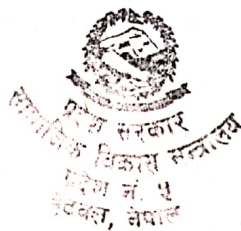 प्रदेश सरकार
सामाजिक विकास मन्त्रालय
प्रदेश नं. ५
बुटवल, नेपाल